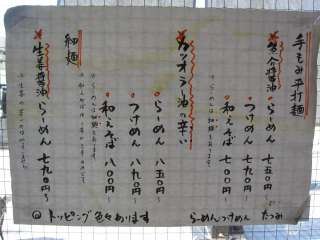 手もみ平打麺
魚介醤油らーめん 七五〇円〜
つけめん 七九〇円〜
和えそば 七〇〇円〜
カオラー油の辛い
らーめん 八五〇〜
つけめん 八九〇円〜
和えそば 八〇〇〜
細麺
生姜醤油らーめん 七九〇円〜
トッピング色々あります
らーめんつけめん たつみ